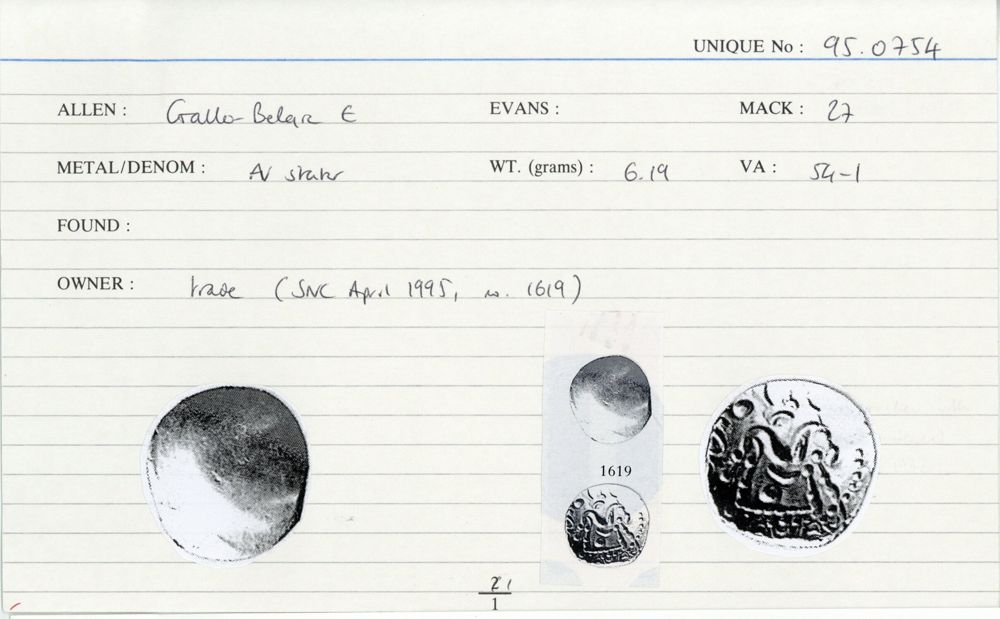 UNIQUE No : 95.0754
ALLEN : Gallo-Belgic E EVANS : MACK : 27
METAL/DENOM : AV stater WT. (grams) : 6.19 VA : 54-1
FOUND :
OWNER : trade (SNC April 1995, no. 1619)
1619
1
1